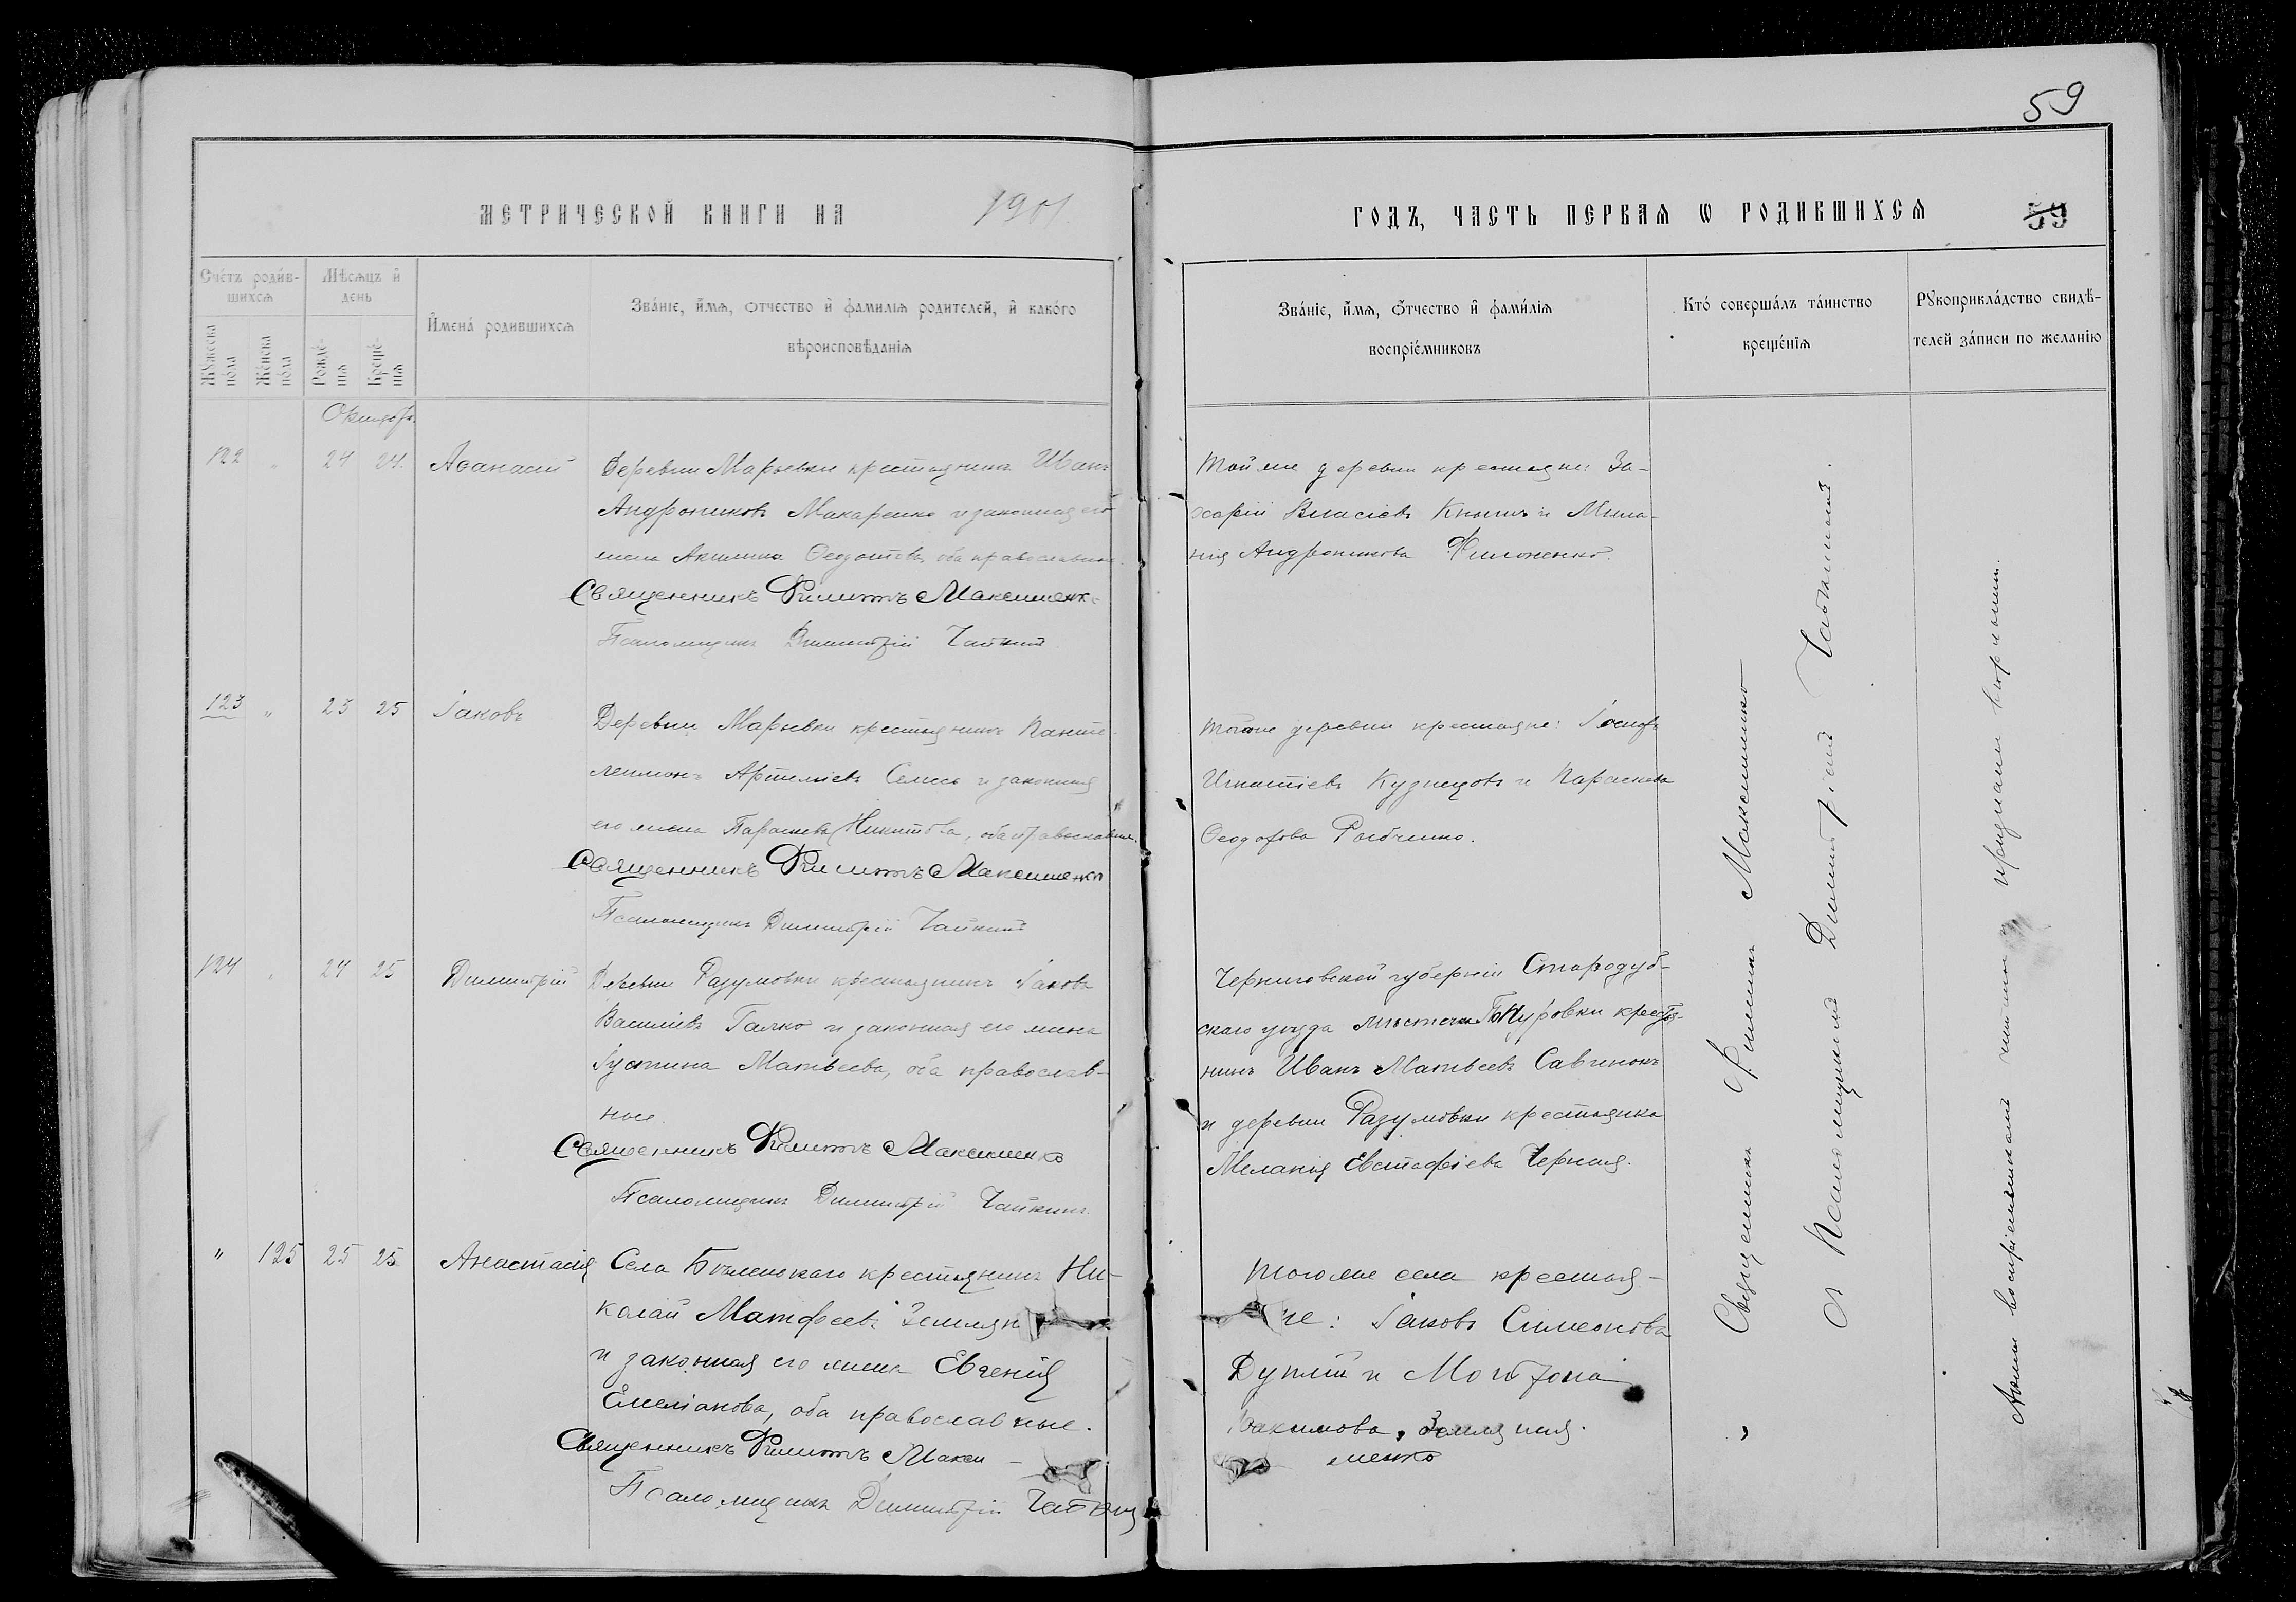 59
МЕТРИЧЕСКОЙ КНИГИ НА 1901
ГОДЪ, ЧАСТЬ ПЕРВАЯ Ѡ РОДИВШИХСЯ 59
Счетъ родившихся
Мѣсяцъ и день
Мужеска пола
Женска пола
Рожденія
Крещенія
Имена родившихся
Званіе, имя, отчество и фамилія родителей, и какого
вѣроисповѣданія
Званіе, имя, отчество и фамилія
воспріемниковъ
Кто совершалъ таинство
крещенія
Рукоприкладство свидѣ-
телей записи по желанію
122 " 24 24. Аѳанасій
Деревни Марьевки крестьянинъ Иванъ
Андрониковъ Макаренко и законная его
жена Акилина Ѳеодотова, оба православные.
Священникъ Филиппъ Максименко
Псаломщикъ Димитрій
Той же деревни крестьяне: За-
харій Власіевъ и Мела-
нія Андроникова Филоненко.
123 " 23 25 Іаковъ
Деревни Марьевки крестьянинъ Панте-
леимонъ Артеміевъ и законная
его жена Параскева Никитова, оба православные.
Священникъ Филиппъ Максименко
Псаломщикъ Димитрій
Тойже деревни крестьяне: Іосифъ
Игнатіевъ Кузнецовъ и Параскева
Ѳеодорова Рыбченко.
124 " 24 25 Димитрій
Деревни Разумовки крестьянинъ Іаковъ
Василіевъ Галко и законная его жена
Іустина Матвѣева, оба православ-
ные.
Священникъ Филиппъ Максименко
Псаломщикъ Димитрій
Черниговской губерніи Стародуб-
скаго уѣзда крестья-
нинъ Иванъ Матвѣевъ Савченокъ
и деревни Разумовки крестьянка
Меланія Евстафіева Черная.
" 125 25 25 Анастасія
Села Бѣленькаго крестьянинъ Ни-
колай Матѳеевъ
и законная его жена Евгенія
Емеліанова, оба православные.
Священникъ Филиппъ Макси-
менко
Псаломщикъ Димитрій
Того же села крестья-
не: Іаковъ Симеоновъ
и Матрона
Іоакимова Земляная.
Священникъ Филиппъ Максименко
съ Псаломщикомъ Димитріемъ